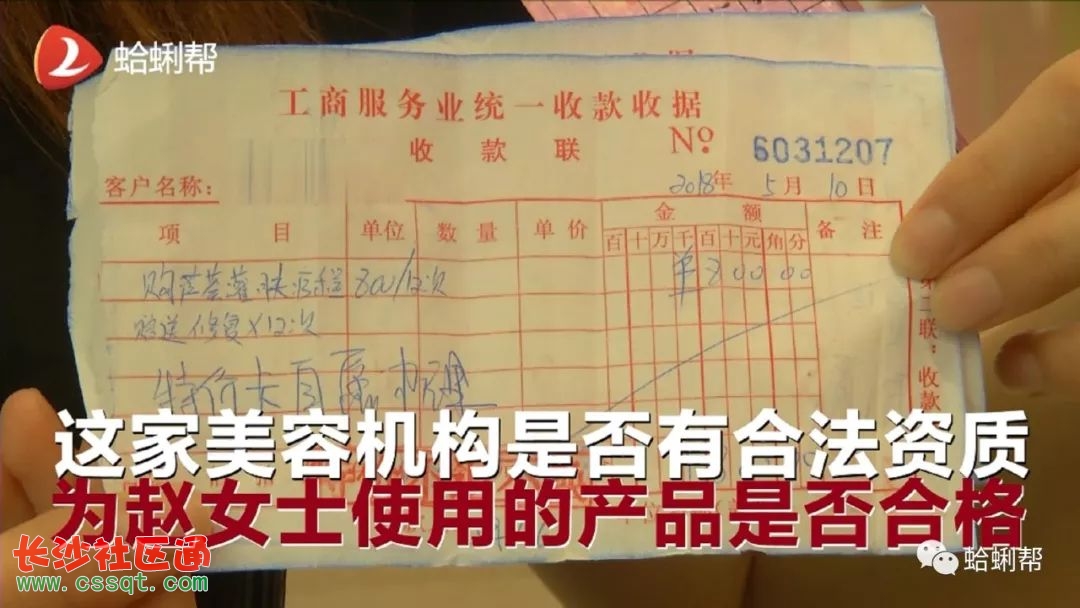 蛤蜊帮
工商服务业统一收款收据
收款联 No. 6031207
客户名称: 2018年 5月 10日
项目 单位 数量 单价 金额 备注
百 十 万 千 百 十 元 角 分
800/12次 800 00
赠送修复X12次
特价卡自愿办理
第二联:收款
这家美容机构是否有合法资质
为赵女士使用的产品是否合格
长沙社区通
www.cssqt.com
蛤蜊帮